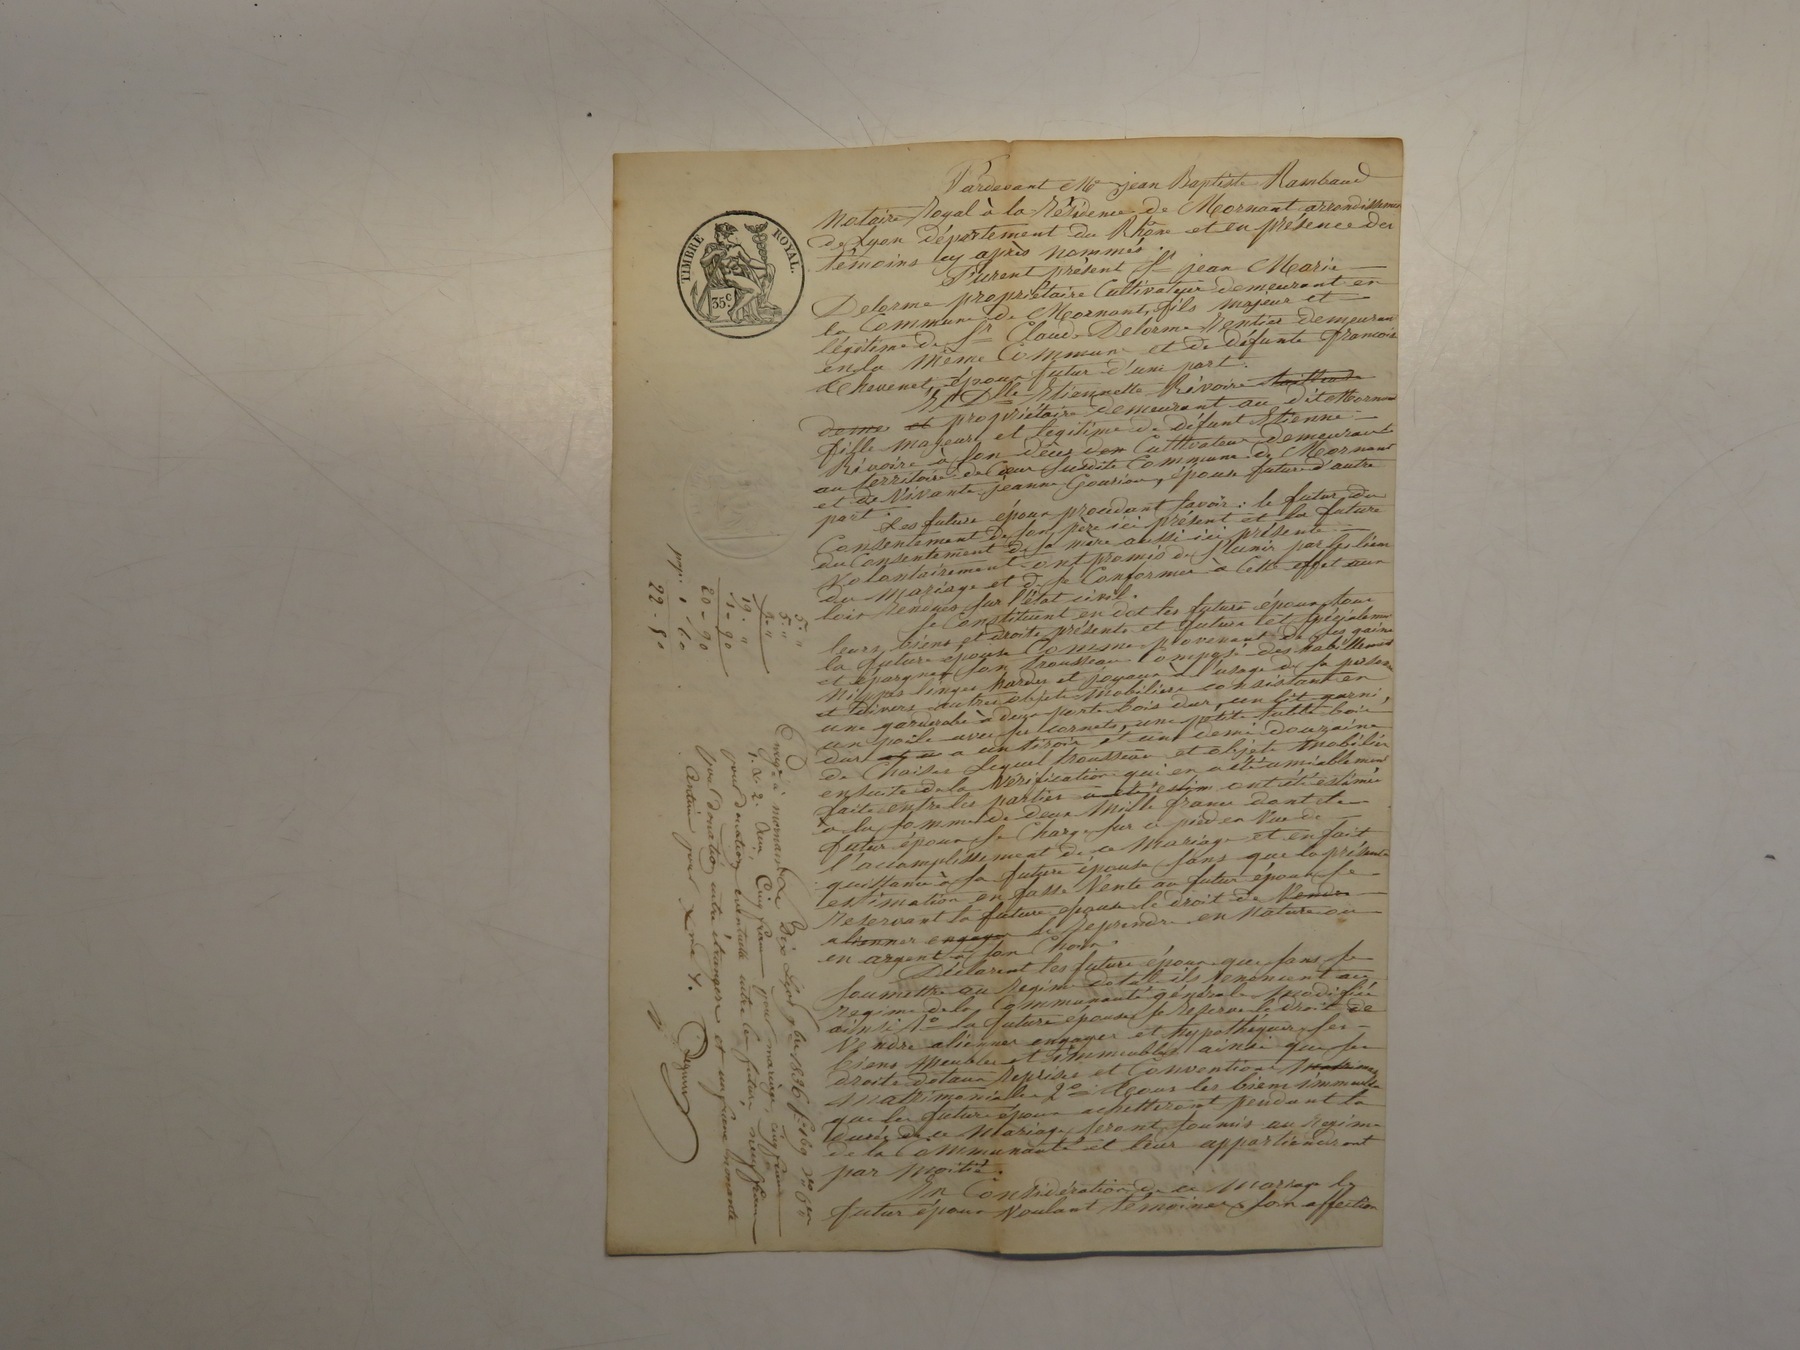 TIMBRE ROYAL.
35c
Pardevant Me jean Baptiste Rambaud
Notaire Royal à la Résidence de Mornant arrondisseme
de Lyon département du Rhône et en présence des
témoins cy après nommés.
Furent présent Sr jean Marie
Delorme propriétaire Cultivateur demeurant en
la Commune de Mornant, fils majeur et
légitime de Sr Claude Delorme Rentier demeurant
en la Même Commune et de défunte françoise
Chevenet, époux futur d'une part.
Et Dlle Etiennette Révoire
propriétaire demeurant au dit Mornant
fille majeure et légitime de défunt Etienne
Révoire à son décès dem Cultivateur demeurant
au territoire de Coeur susdite Commune de Mornant
et de Vivante jeanne Gourion, épouse future d'autre
part.
Les future époux procédant savoir: le futur du
Consentement de son père ici présent et la future
du Consentement de sa mère aussi ici présente
Volontairement ont promis de s'unir par les lien
du Mariage et de se Conformer à Cette effet aux
lois Rendues sur l'état civil.
Se Constituent en dot les future époux tous
leurs biens et droits présents et future et spécialeme
la future épouse Comme provenant de ses gains
et épargnes son trousseau Composé des habillements
Nippes linges hardes et joyaux à l'usage de sa personne
et Divers autres objets Mobiliers consistant en
une garderobe à deux porte bois dur, un lit garni,
un poêle avec ses cornets, une petite table bois
dur a un tiroir, et une demi douzaine
de Chaises Lequel trousseau et objets Mobilier
ensuite de la Vérification qui en a été amiablement
faite entre les parties ont été estimée
a la somme de deux Mille francs dont le
futur époux se Charge sur ce pied en Vue de
l'accomplissement de ce Mariage et en fait
quittance à sa future épouse sans que la présente
estimation en fasse Vente au futur époux se
reservant la future épouse le droit de Vendre
alienner engager de Reprendre en Nature ou
en argent à son Choix.
Déclarent les future époux que sans se
soumettre au Regime dotal ils renoncent au
regime de la Communauté générale Modifiée
ainsi 1o la future épouse se Reserve le droit de
Vendre alienner engager et hypothéquer ses
biens Meubles et immeubles ainsi que ses
droits dotaux Reprises et Convention
Matrimoniales 2o tous les biens immeubles
que les future époux achetteront pendant la
durée de ce Mariage seront soumis au Regime
de la Communauté et leur appartiendront
par moitié.
En Considération de ce Mariage le
futur époux Voulant témoigner son affection
5. "
5. "
9. "
19. "
1 - 90
20 - 90
1. 60
22 - 50
Enregé à mornant le Dix sept 7bre 1836 fo 169
C. 1. & 2. Reçu Cinq francs pour mariage, cinq francs
pour donation éventuelle entre les futurs, neuf francs
pour donation entre étrangers et un franc nonante
centimes pour